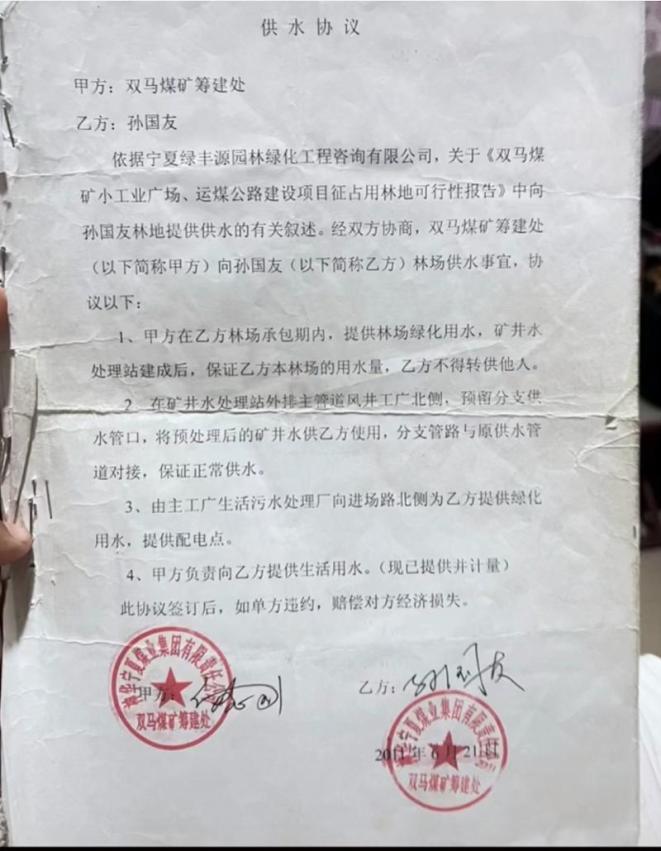 供水协议
甲方：双马煤矿筹建处
乙方：孙国友
依据宁夏绿丰源园林绿化工程咨询有限公司，关于《双马煤
矿小工业广场、运煤公路建设项目征占用林地可行性报告》中向
孙国友林地提供供水的有关叙述。经双方协商，双马煤矿筹建处
（以下简称甲方）向孙国友（以下简称乙方）林场供水事宜，协
议以下：
1、甲方在乙方林场承包期内，提供林场绿化用水，矿井水
处理站建成后，保证乙方本林场的用水量，乙方不得转供他人。
2、在矿井水处理站外排主管道风井工广北侧、预留分支供
水管口，将预处理后的矿井水供乙方使用，分支管路与原供水管
道对接，保证正常供水。
3、由主工广生活污水处理厂向进场路北侧为乙方提供绿化
用水，提供配电点。
4、甲方负责向乙方提供生活用水。（现已提供并计量）
此协议签订后，如单方违约，赔偿对方经济损失。
甲方：
乙方：孙国友
2011年6月21日
神华宁夏煤业集团有限责任
双马煤矿筹建处
神华宁夏煤业集团有限责任
双马煤矿筹建处